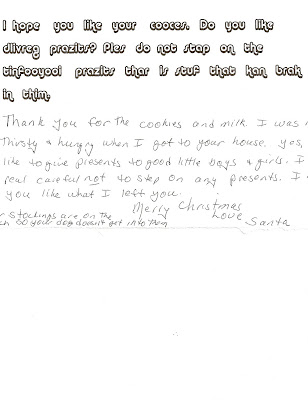 I hope you like your cooces. Do you like
dlivreg prazits? Ples do not stap on the
tinfooyooi prazits thar is stuf that kan brak
in thim.
Thank you for the cookies and milk. I was
Thirsty & hungry when I got to your house. yes,
like to give presents to good little boys & girls. I
real careful not to step on any presents. I
you like what I left you.
Merry Christmas
Love
Santa
r Stockings are on the
so your dog doesn't get into them